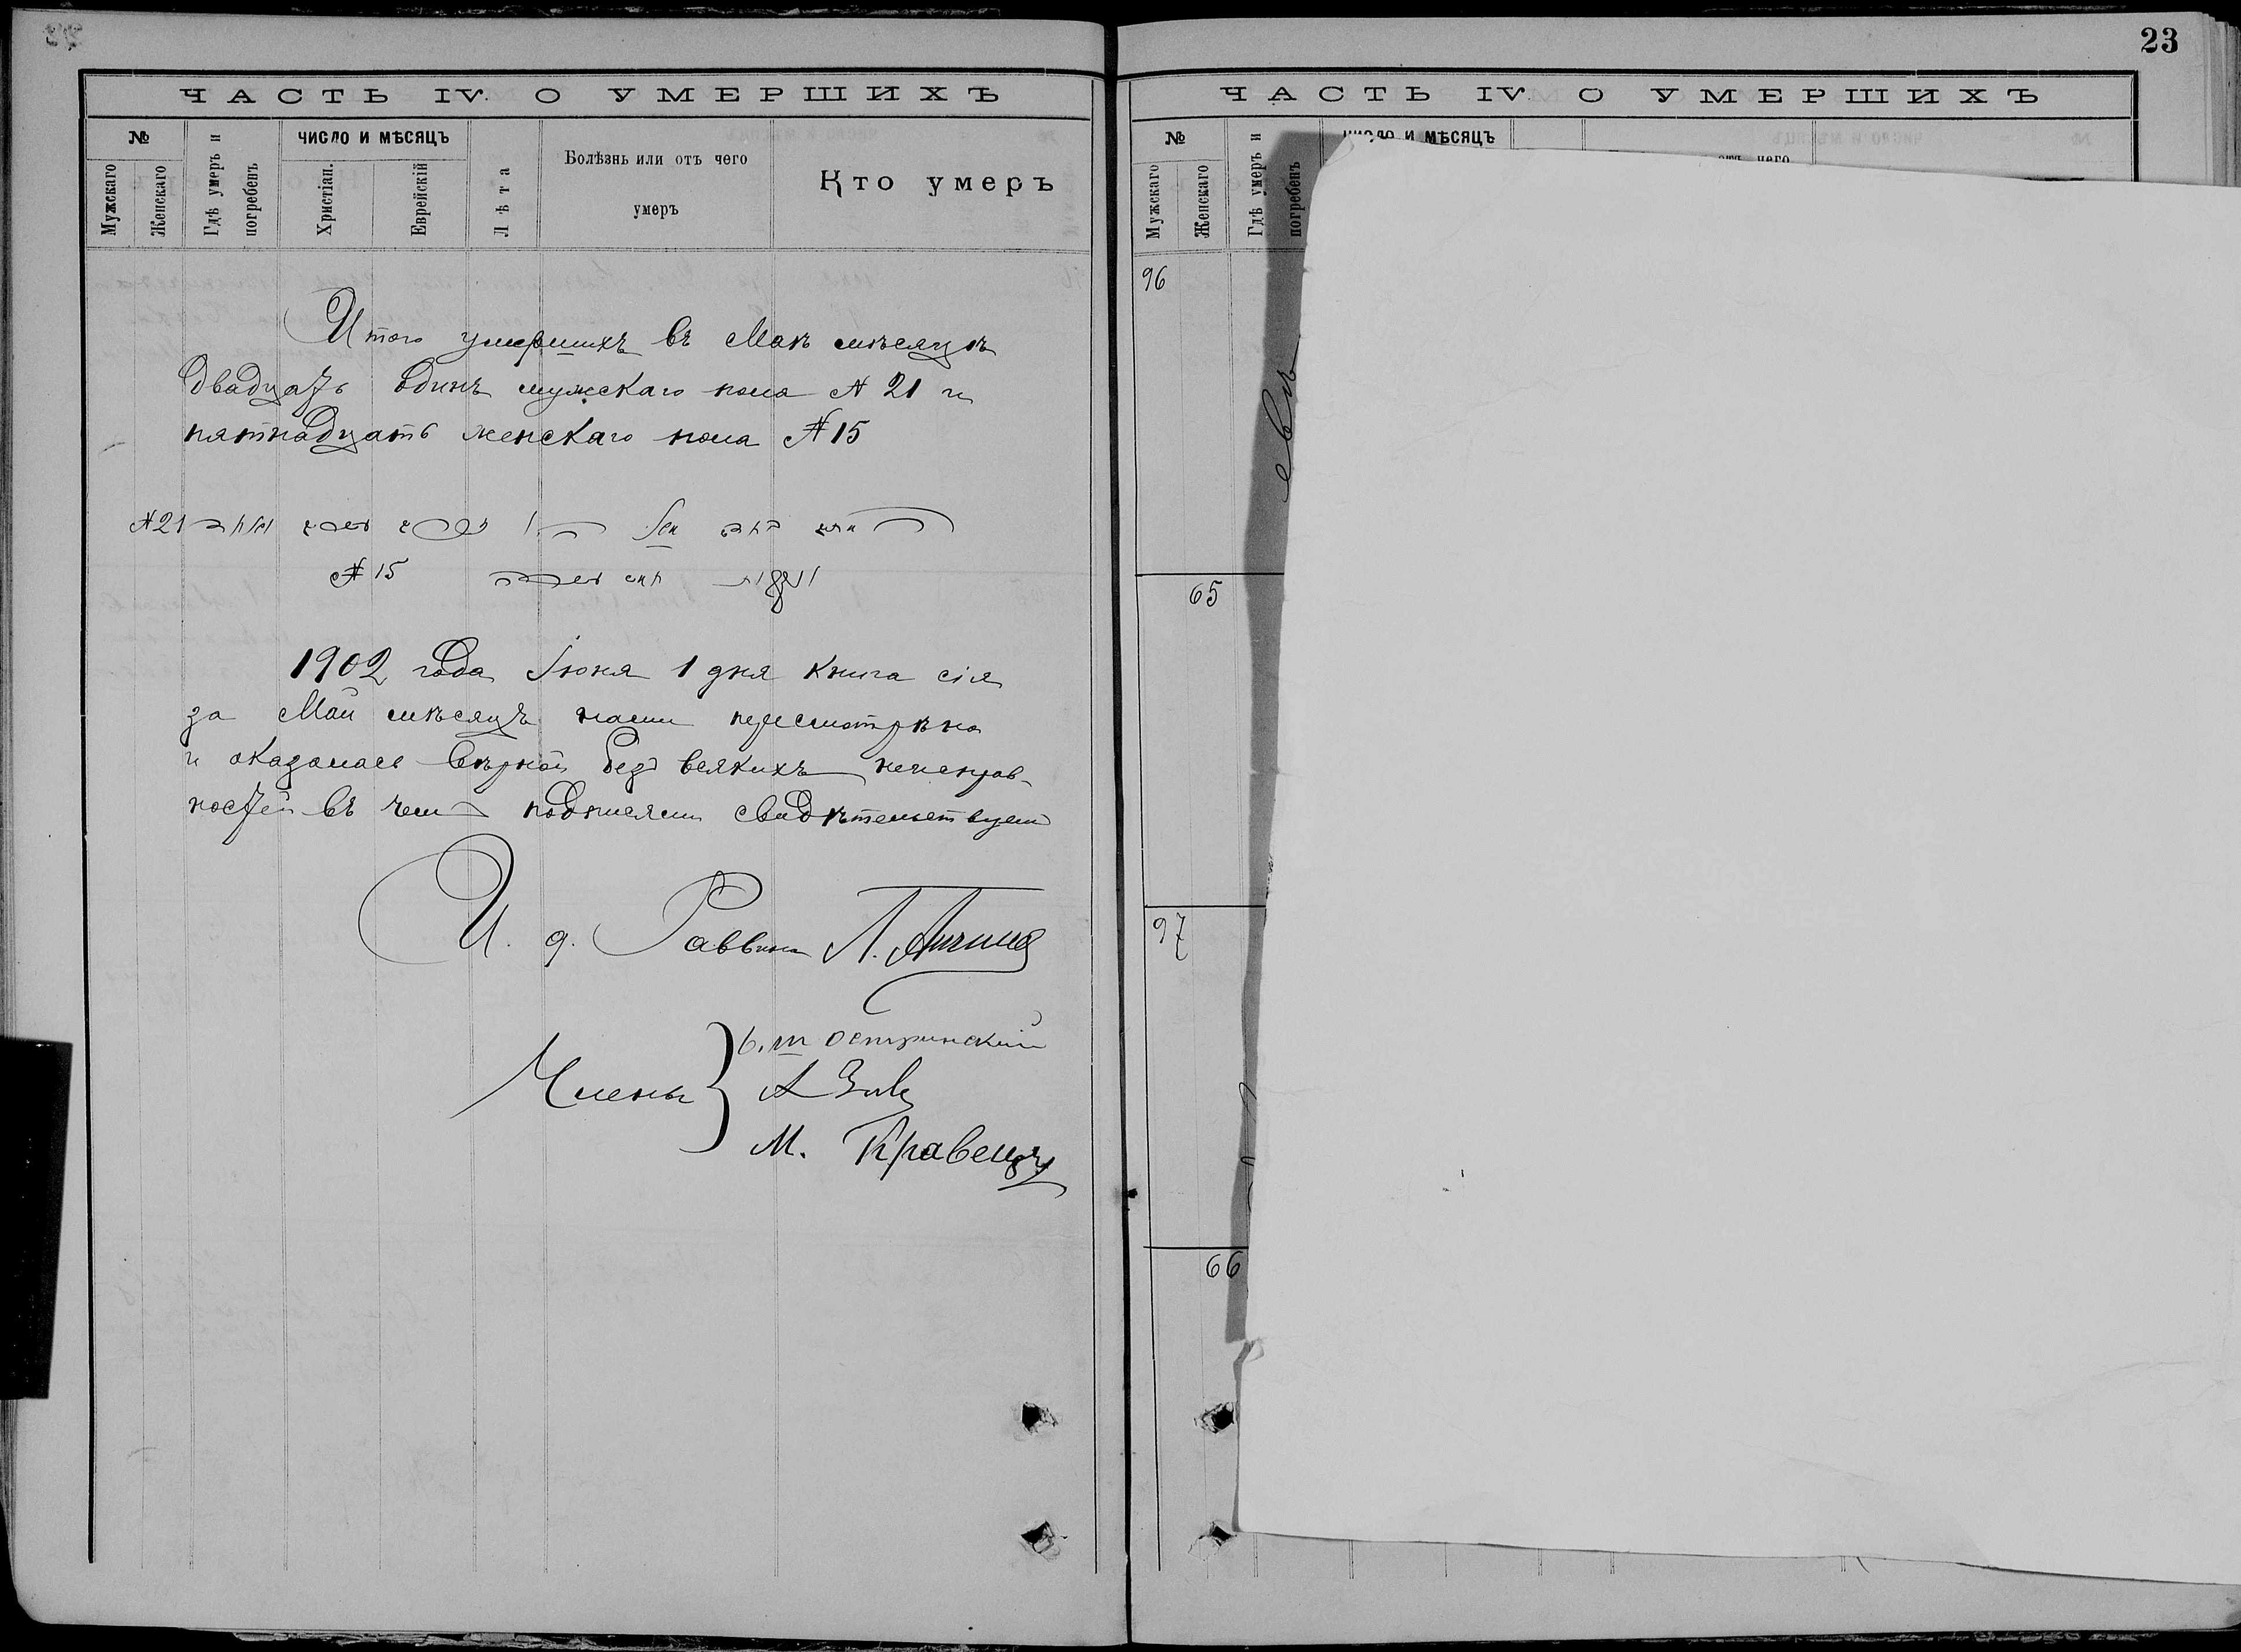 ЧАСТЬ IV. О УМЕРШИХЪ
№
Мужскаго
Женскаго
Гдѣ умеръ и погребенъ
ЧИСЛО И МѢСЯЦЪ
Христіан.
Еврейскій
Лѣта
Болѣзнь или отъ чего
умеръ
Кто умеръ
Итого умершихъ въ Маѣ мѣсяцѣ
двадцать одинъ мужскаго пола № 21 и
пятнадцать женскаго пола № 15
№ 21
№ 15
1902 года Іюня 1 дня книга сія
за Май мѣсяцъ нами пересмотрѣна
и оказалась вѣрной безъ всякихъ неисправ-
ностей въ чемъ подписями свидѣтельствуемъ
И. д. Раввина Л.
Члены
Остринскій
А Зив
М. Кравецъ
23
ЧАСТЬ IV. О УМЕРШИХЪ
№
Мужскаго
Женскаго
Гдѣ умеръ и погребенъ
ЧИСЛО И МѢСЯЦЪ
отъ чего
96
65
97
66